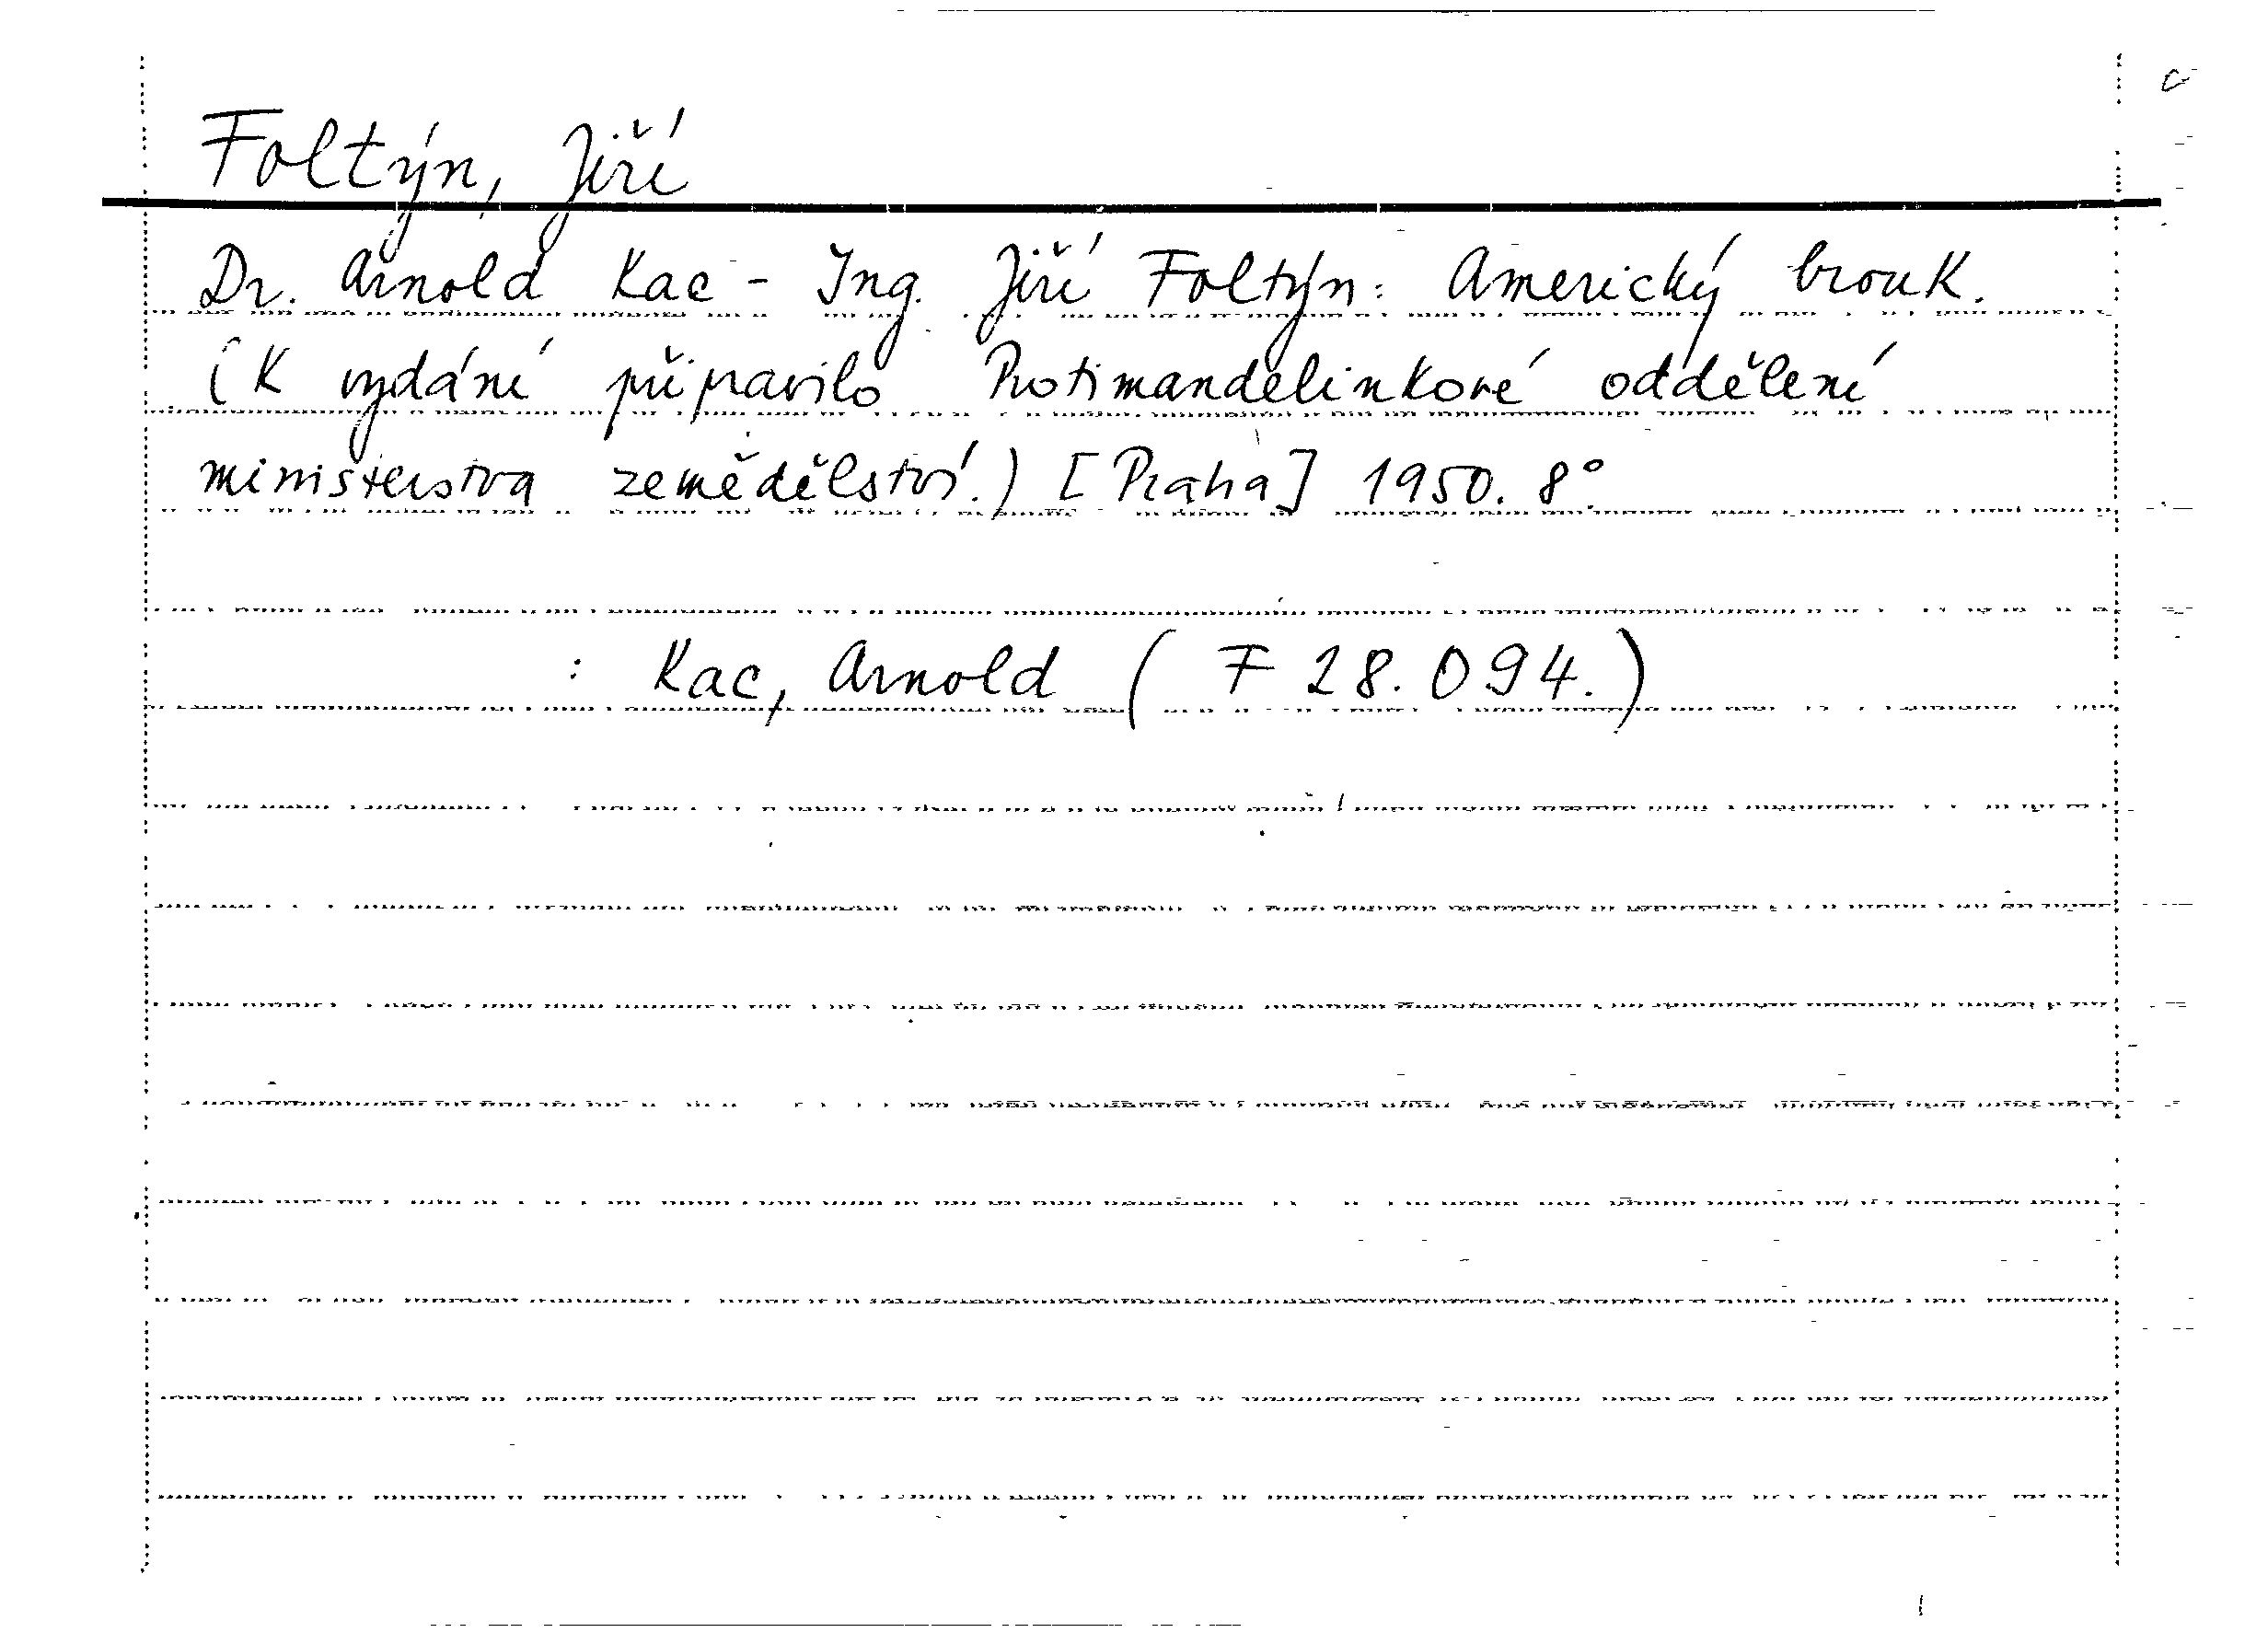 Foltýn, Jiří
Dr. Arnold Kac - Ing. Jiří Foltýn: Americký brouk.
(K vydání připravilo Protimandelinkové oddělení
ministerstva zemědělství.) [Praha] 1950. 8°.
: Kac, Arnold ( F 28.094.)